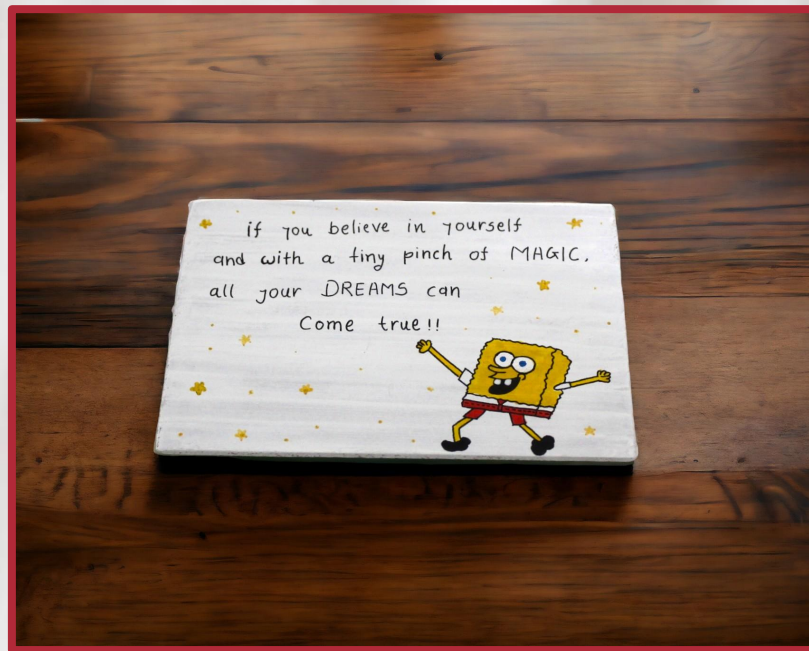 if you believe in yourself
and with a tiny pinch of MAGIC.
all your DREAMS can
Come true!!